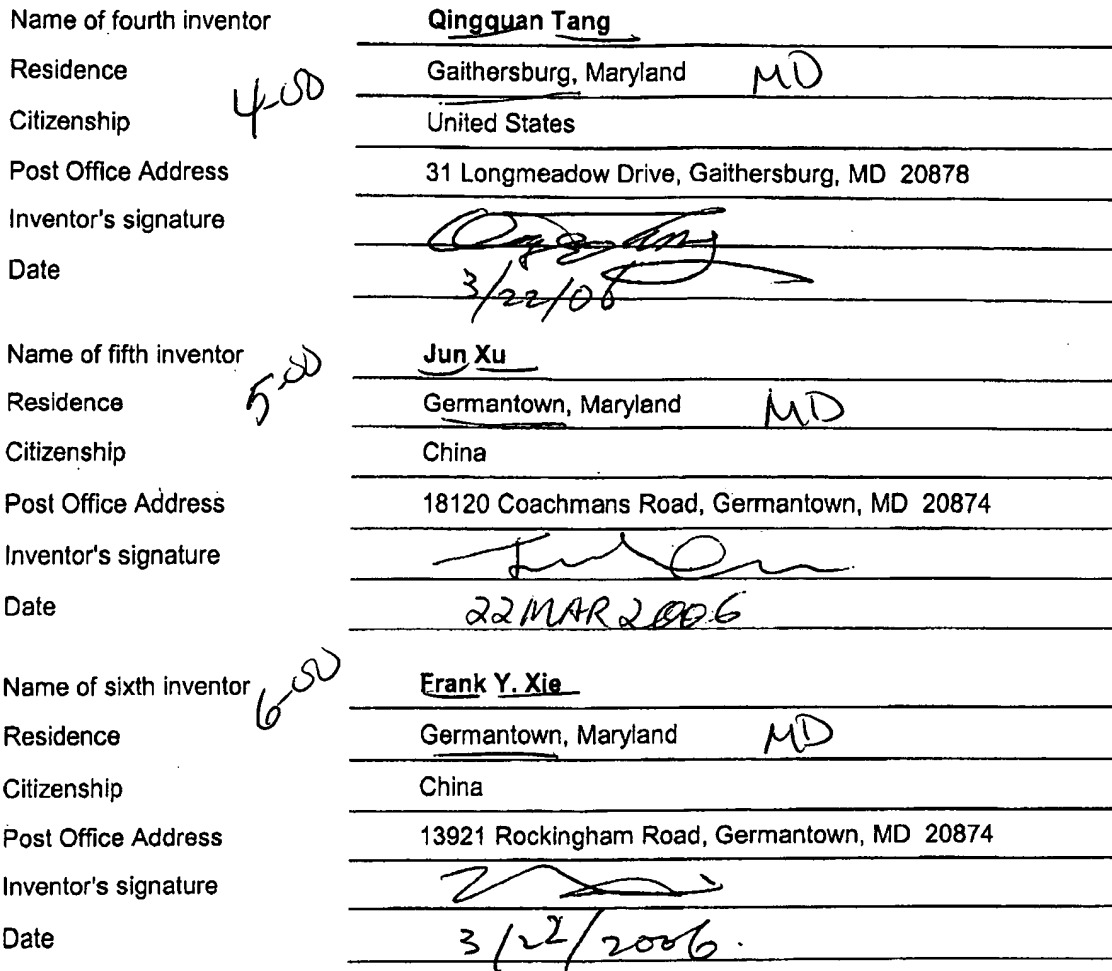 Name of fourth inventor Qingquan Tang
Residence Gaithersburg, Maryland MD
4-00
Citizenship United States
Post Office Address 31 Longmeadow Drive, Gaithersburg, MD 20878
Inventor's signature
Date 3/22/06
Name of fifth inventor Jun Xu
5-00
Residence Germantown, Maryland MD
Citizenship China
Post Office Address 18120 Coachmans Road, Germantown, MD 20874
Inventor's signature
Date 22 MAR 2006
Name of sixth inventor Frank Y. Xie
6-00
Residence Germantown, Maryland MD
Citizenship China
Post Office Address 13921 Rockingham Road, Germantown, MD 20874
Inventor's signature
Date 3/22/2006.